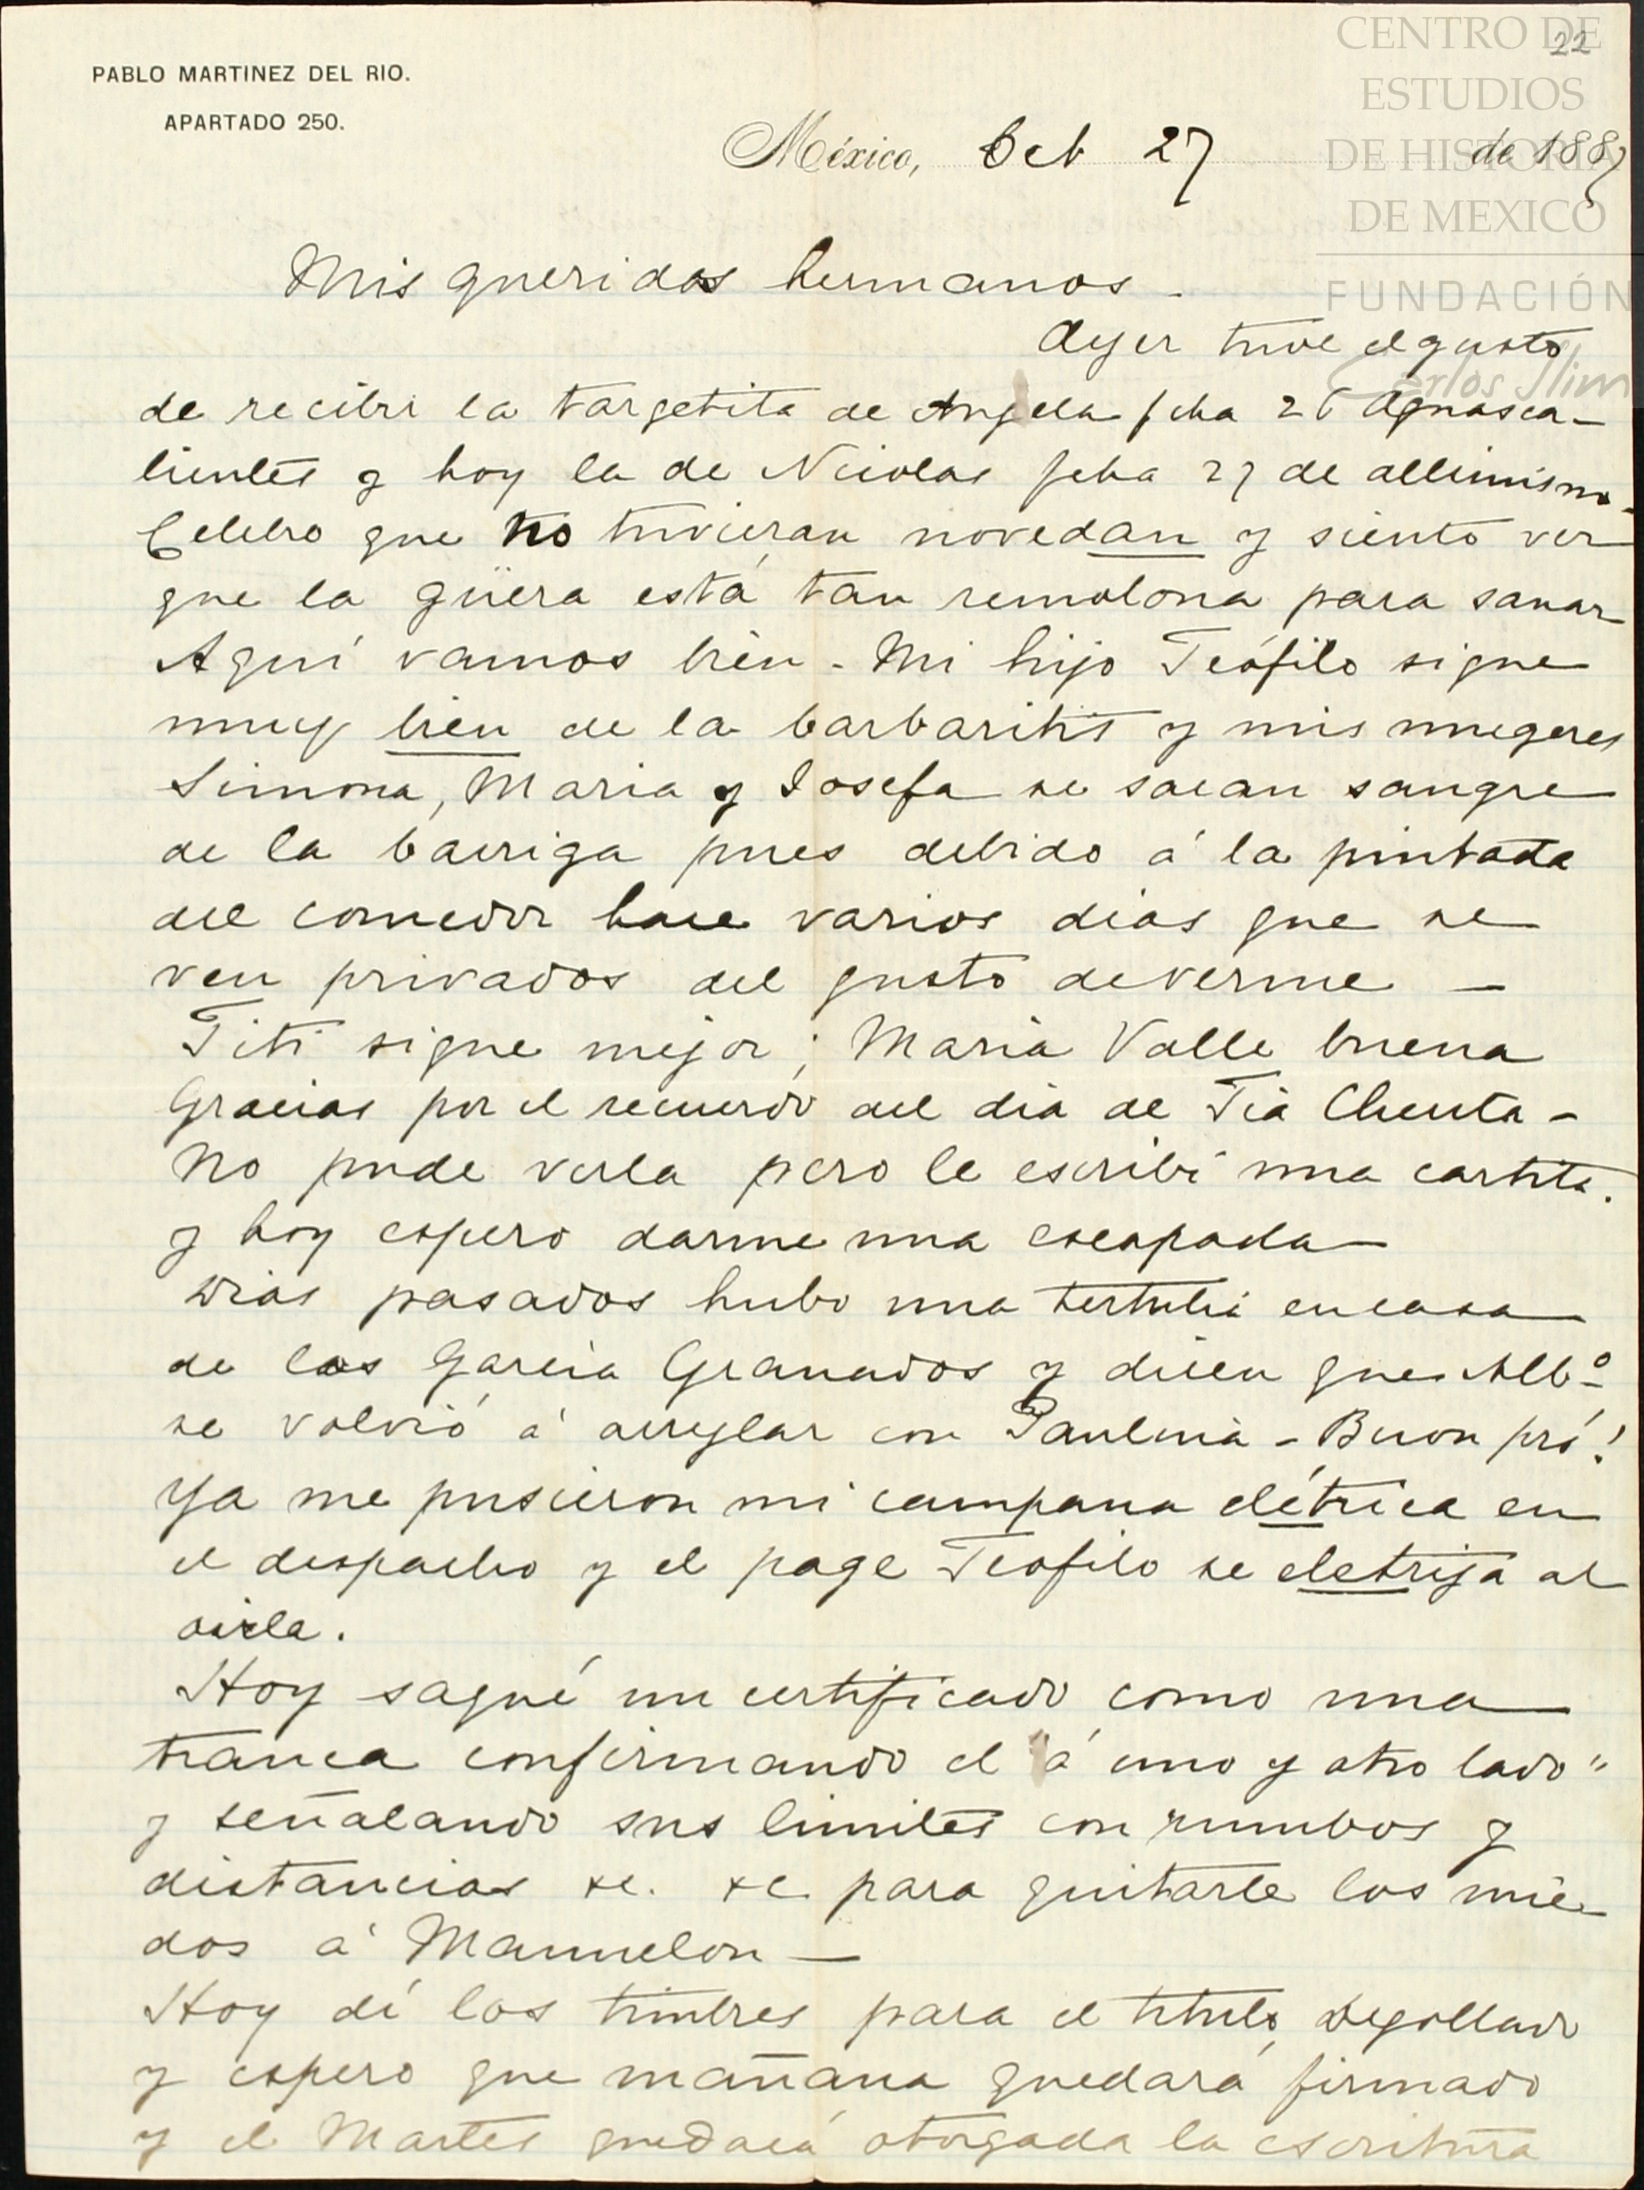 CENTRO DE
ESTUDIOS
DE HISTORIA
DE MEXICO
FUNDACIÓN
Carlos Slim
22
PABLO MARTINEZ DEL RIO.
APARTADO 250.
México, Oct 27 de 1887
Mis queridos hermanos -
Ayer tuve el gusto
de recibir la targetita de Angela fcha 26 Aguasca-
lientes y hoy la de Nicolas fcha 27 de allimismo-
Celebro que no tuvieran novedan y siento ver
que la güera está tan remolona para sanar
Aquí vamos bien - Mi hijo Teófilo sigue
muy bien de la barbaritis y mis mugeres
Simona, Maria y Josefa se sacan sangre
de la barriga pues debido á la pintada
del comedor hace varios dias que se
ven privados del gusto deverme -
Titi sigue mejor; Maria Valle buena
Gracias por el recuerdo del dia de Tia Chenta -
No pude verla pero le escribí una cartita.
y hoy espero darme una escapada
Dias pasados hubo una tertulia encasa
de los Garcia Granados y dicen que Albº
se volvió á arreglar con Paulina - Buon pró!
Ya me pusieron mi campana elétrica en
el despacho y el page Teofilo se eletrija al
oirla.
Hoy saqué un certificado como una
tranca confirmando el "á uno y otro lado"
y señalando sus limites con rumbos y
distancias &c. &c para quitarle los mie-
dos á Manuelon -
Hoy dí los timbres para el titulo Degollado
y espero que mañana quedará firmado
y el Martes quedará otorgada la escritura